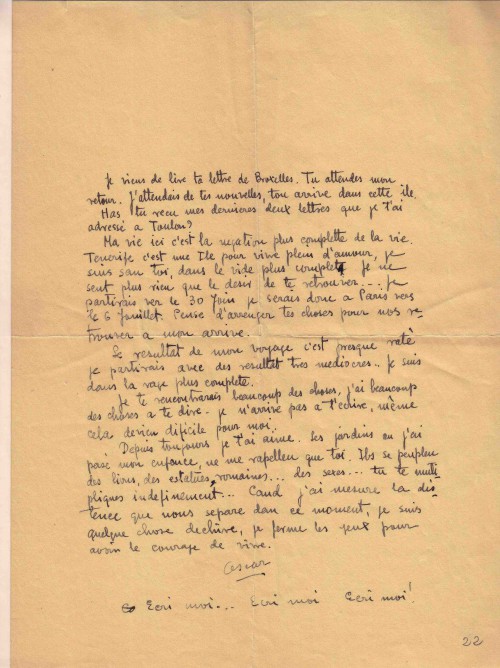 Je viens de lire ta lettre de Bruxelles. Tu attendes mon
retour. J'attendais de tes nouvelles, ton arrive dans cette ile.
Has tu reçu mes dernieres deux lettres que je t'ai
adressé a Toulon?
Ma vie ici c'est la negation plus complette de la vie.
Tenerife c'est une Ile pour vivre plein d'amour, je
suis san toi, dans le vide plus complet, Je ne
sent plus rien que le desir de te retrouver.... Je
partirais ver le 30 Juin je serais donc a Paris vers
le 6 Juillet. Pense d'arranger tes choses pour nos re-
trouver a mon arrive.
Le resultat de mon voyage c'est presque raté
je partirais avec des resultat tres mediocres.. Je suis
dans la rage plus complete.
Je te rencontrarais beaucoup des choses, j'ai beaucoup
des choses a te dire - je n'arrive pas a t'ecrire, même
cela devien dificile pour moi.
Depuis toutjours je t'ai aime. Les jardins ou j'ai
pasé mon enfance, ne me rapellen que toi. Ils se peuplen
des lions, des estatues romaines... des sexes... tu te multi-
pliques indefinement... Cand j'ai mesure la dis-
tence que nous separe dan ce moment, je suis
quelque chose dechire, je ferme les yeux pour
avoir le courage de vivre.
Oscar
Ecri moi... Ecri moi Ecri moi!
22